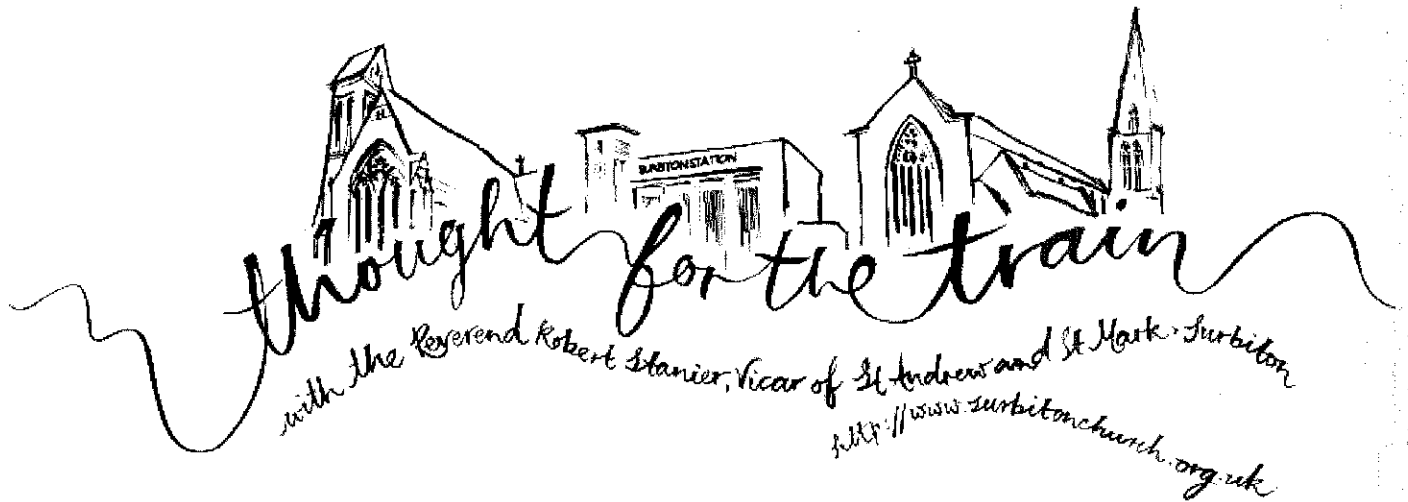 SURBITON STATION
thought for the train
with the Reverend Robert Stanier, Vicar of St Andrew and St Mark · Surbiton
http://www.surbitonchurch.org.uk